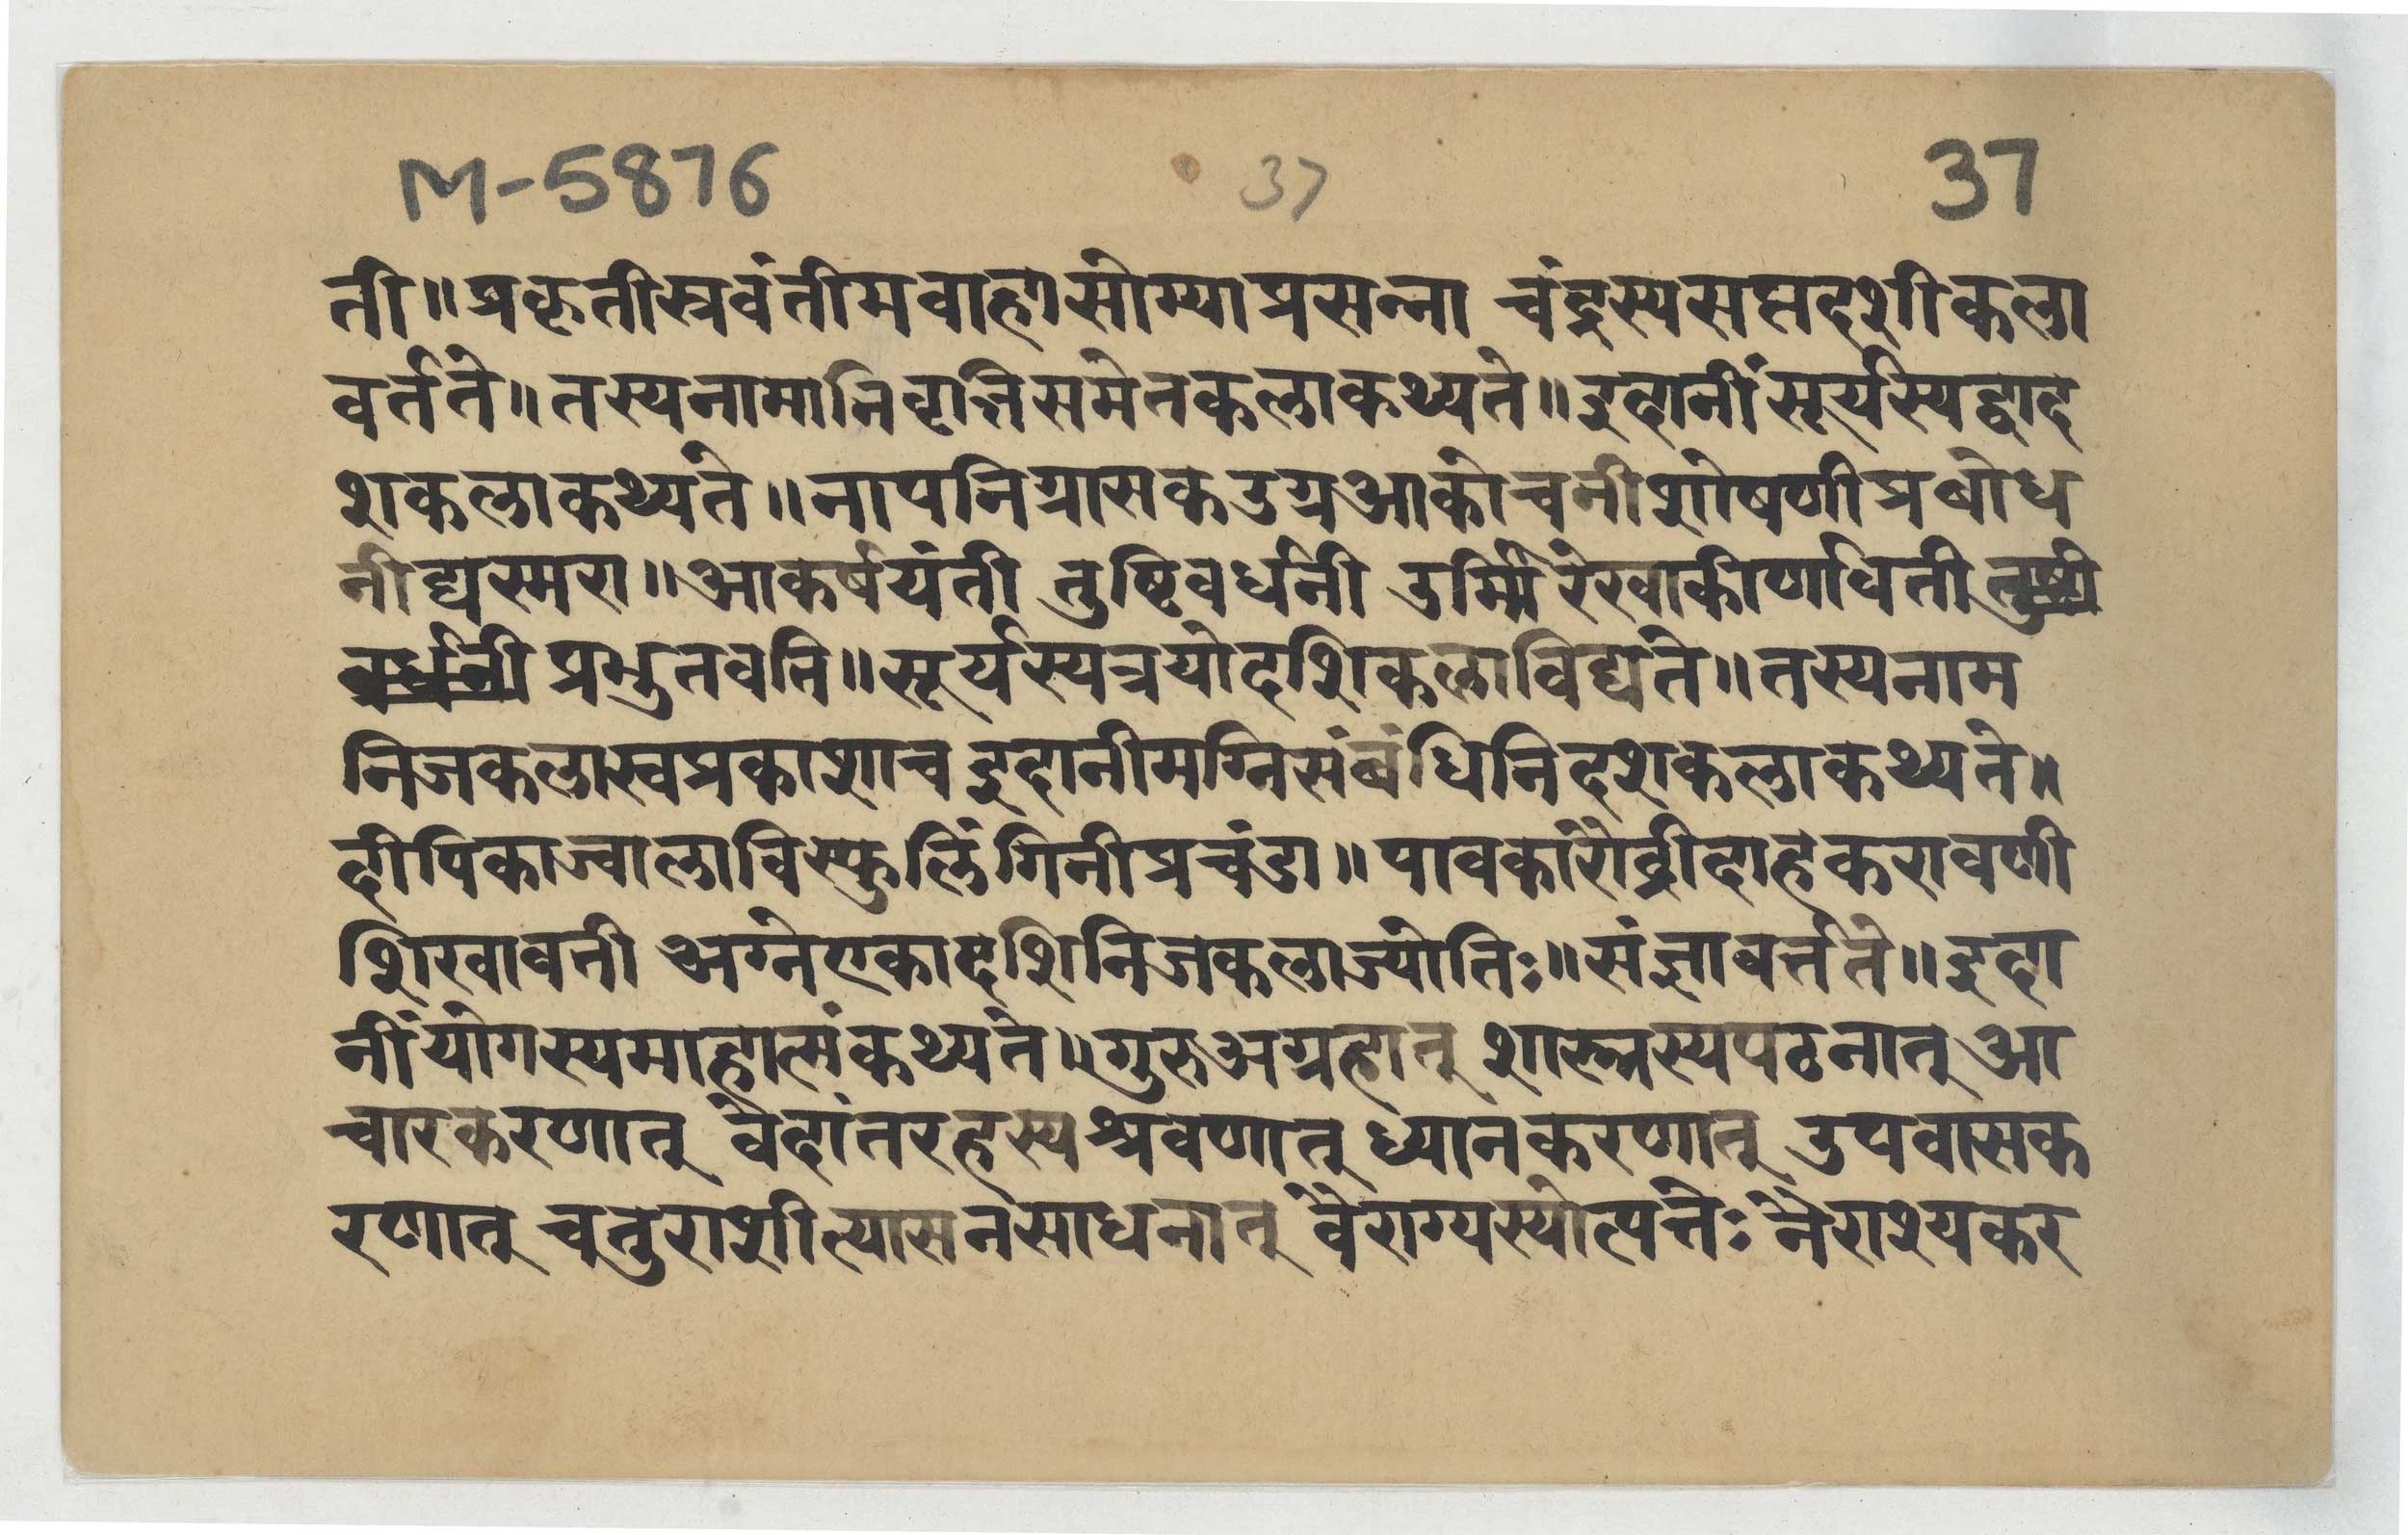 M-5876 37 37
ती॥प्रकृतीस्रवंतीमवाहासोम्याप्रसन्ना चंद्रस्यसप्तदशीकला
वर्तते॥तस्यनामानिवृत्तिसमेतकलाकथ्यते॥इदानीं सूर्यस्यद्वाद
शकलाकथ्यते॥नापनिग्रासकउग्रआकोचनीशोषणीप्रबोध
नीद्यस्मरा॥आकर्षयंती तुष्टिवर्धनी उर्मिरेखाकीणधिती तुष्टी
वर्धनी प्रभुतवति॥सूर्यस्यत्रयोदशिकलाविद्यते॥तस्यनाम
निजकलास्वप्रकाशाच इदानीमग्निसंबंधिनिदशकलाकथ्यते॥
दीपिकाज्वालाविस्फुलिंगिनीप्रचंडा॥पावकारौद्रीदाहकरावणी
शिखावनी अग्नेएकादशिनिजकलाज्योतिः॥संज्ञावर्त्तते॥इदा
नींयोगस्यमाहात्मंकथ्यते॥गुरुअग्रहात् शास्त्रस्यपठनात् आ
चारकरणात् वेदांतरहस्यश्रवणात् ध्यानकरणात् उपवासक
रणात् चतुराशीत्यासनसाधनात् वैराग्यस्योत्पत्तेः नैराश्यकर